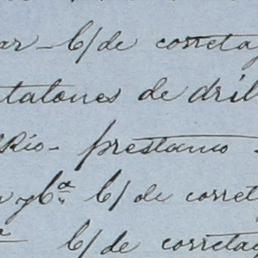 ar - C/ de correta
ntalones de dril
Rio - prestamo -
a y Cª C/ de corret
a C/ de correta